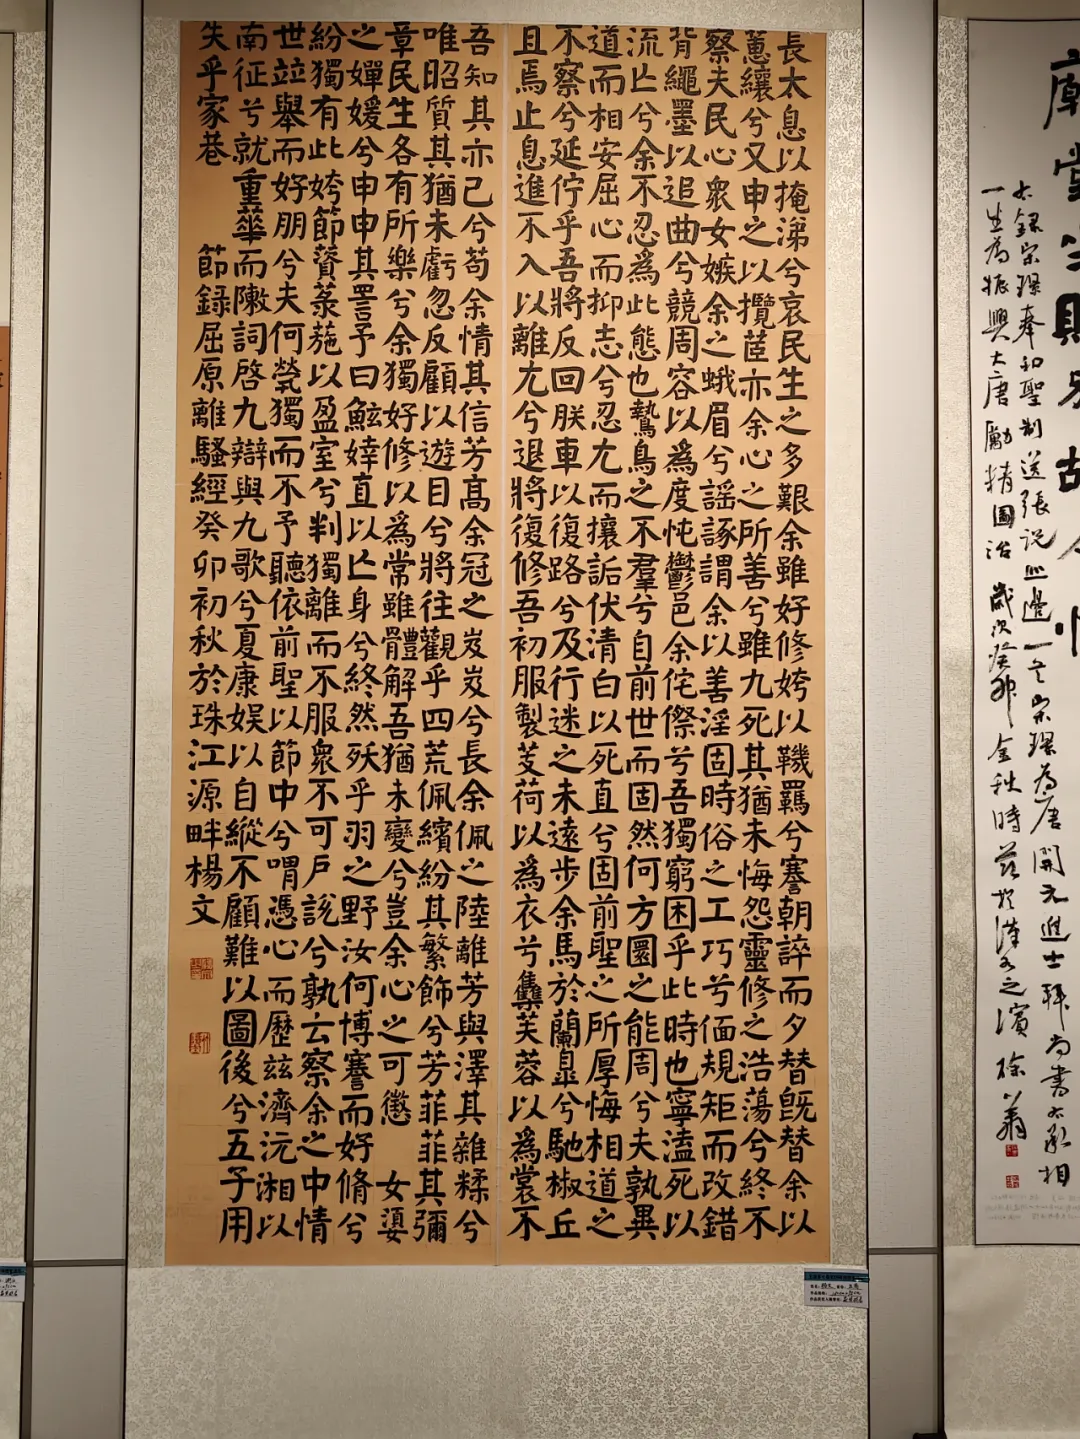 廟堂
右錄宋璟奉和聖制送張說巡邊一首宋璟為唐開元進士拜尚書右丞相
一生為振興大唐勵精圖治 歲次癸卯金秋時
長太息以掩涕兮哀民生之多艱余雖好修姱以鞿羈兮謇朝誶而夕替既替余以
蕙纕兮又申之以攬茝亦余心之所善兮雖九死其猶未悔怨靈修之浩蕩兮終不
察夫民心衆女嫉余之蛾眉兮謠諑謂余以善淫固時俗之工巧兮偭規矩而改錯
背繩墨以追曲兮競周容以為度忳鬱邑余侘傺兮吾獨窮困乎此時也寧溘死以
流亡兮余不忍為此態也鷙鳥之不羣兮自前世而固然何方圜之能周兮夫孰異
道而相安屈心而抑志兮忍尤而攘詬伏清白以死直兮固前聖之所厚悔相道之
不察兮延佇乎吾將反回朕車以復路兮及行迷之未遠步余馬於蘭皋兮馳椒丘
且焉止息進不入以離尤兮退將復修吾初服製芰荷以為衣兮集芙蓉以為裳不
吾知其亦已兮苟余情其信芳高余冠之岌岌兮長余佩之陸離芳與澤其雜糅兮
唯昭質其猶未虧忽反顧以遊目兮將往觀乎四荒佩繽紛其繁飾兮芳菲菲其彌
章民生各有所樂兮余獨好修以為常雖體解吾猶未變兮豈余心之可懲 女嬃
之嬋媛兮申申其詈予曰鮌婞直以亡身兮終然殀乎羽之野汝何博謇而好脩兮
紛獨有此姱節薋菉葹以盈室兮判獨離而不服衆不可戶說兮孰云察余之中情
世並舉而好朋兮夫何煢獨而不予聽依前聖以節中兮喟憑心而歷茲濟沅湘以
南征兮就重華而敶詞啓九辯與九歌兮夏康娛以自縱不顧難以圖後兮五子用
失乎家巷 節錄屈原離騷經癸卯初秋於珠江源畔楊文